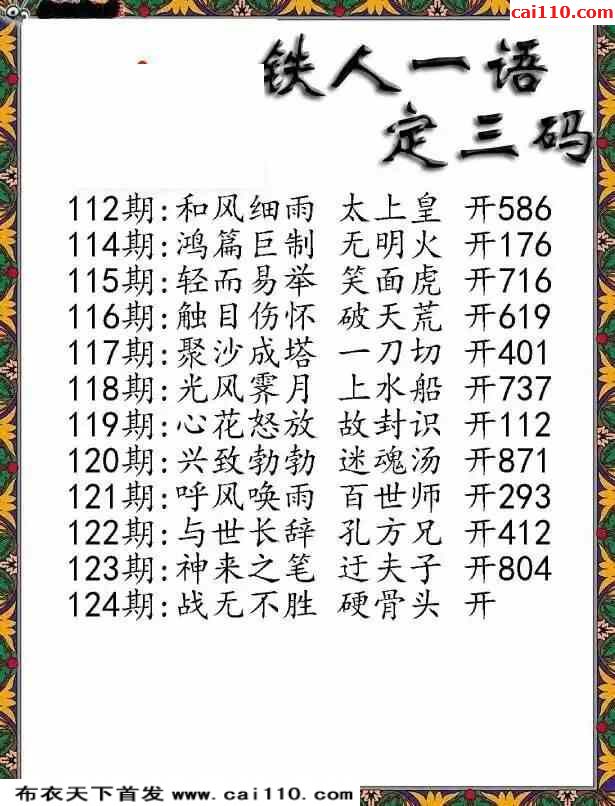 cai110.com
铁人一语
定三码
112期:和风细雨 太上皇 开586
114期:鸿篇巨制 无明火 开176
115期:轻而易举 笑面虎 开716
116期:触目伤怀 破天荒 开619
117期:聚沙成塔 一刀切 开401
118期:光风霁月 上水船 开737
119期:心花怒放 故封识 开112
120期:兴致勃勃 迷魂汤 开871
121期:呼风唤雨 百世师 开293
122期:与世长辞 孔方兄 开412
123期:神来之笔 迂夫子 开804
124期:战无不胜 硬骨头 开
布衣天下首发 www.cai110.com